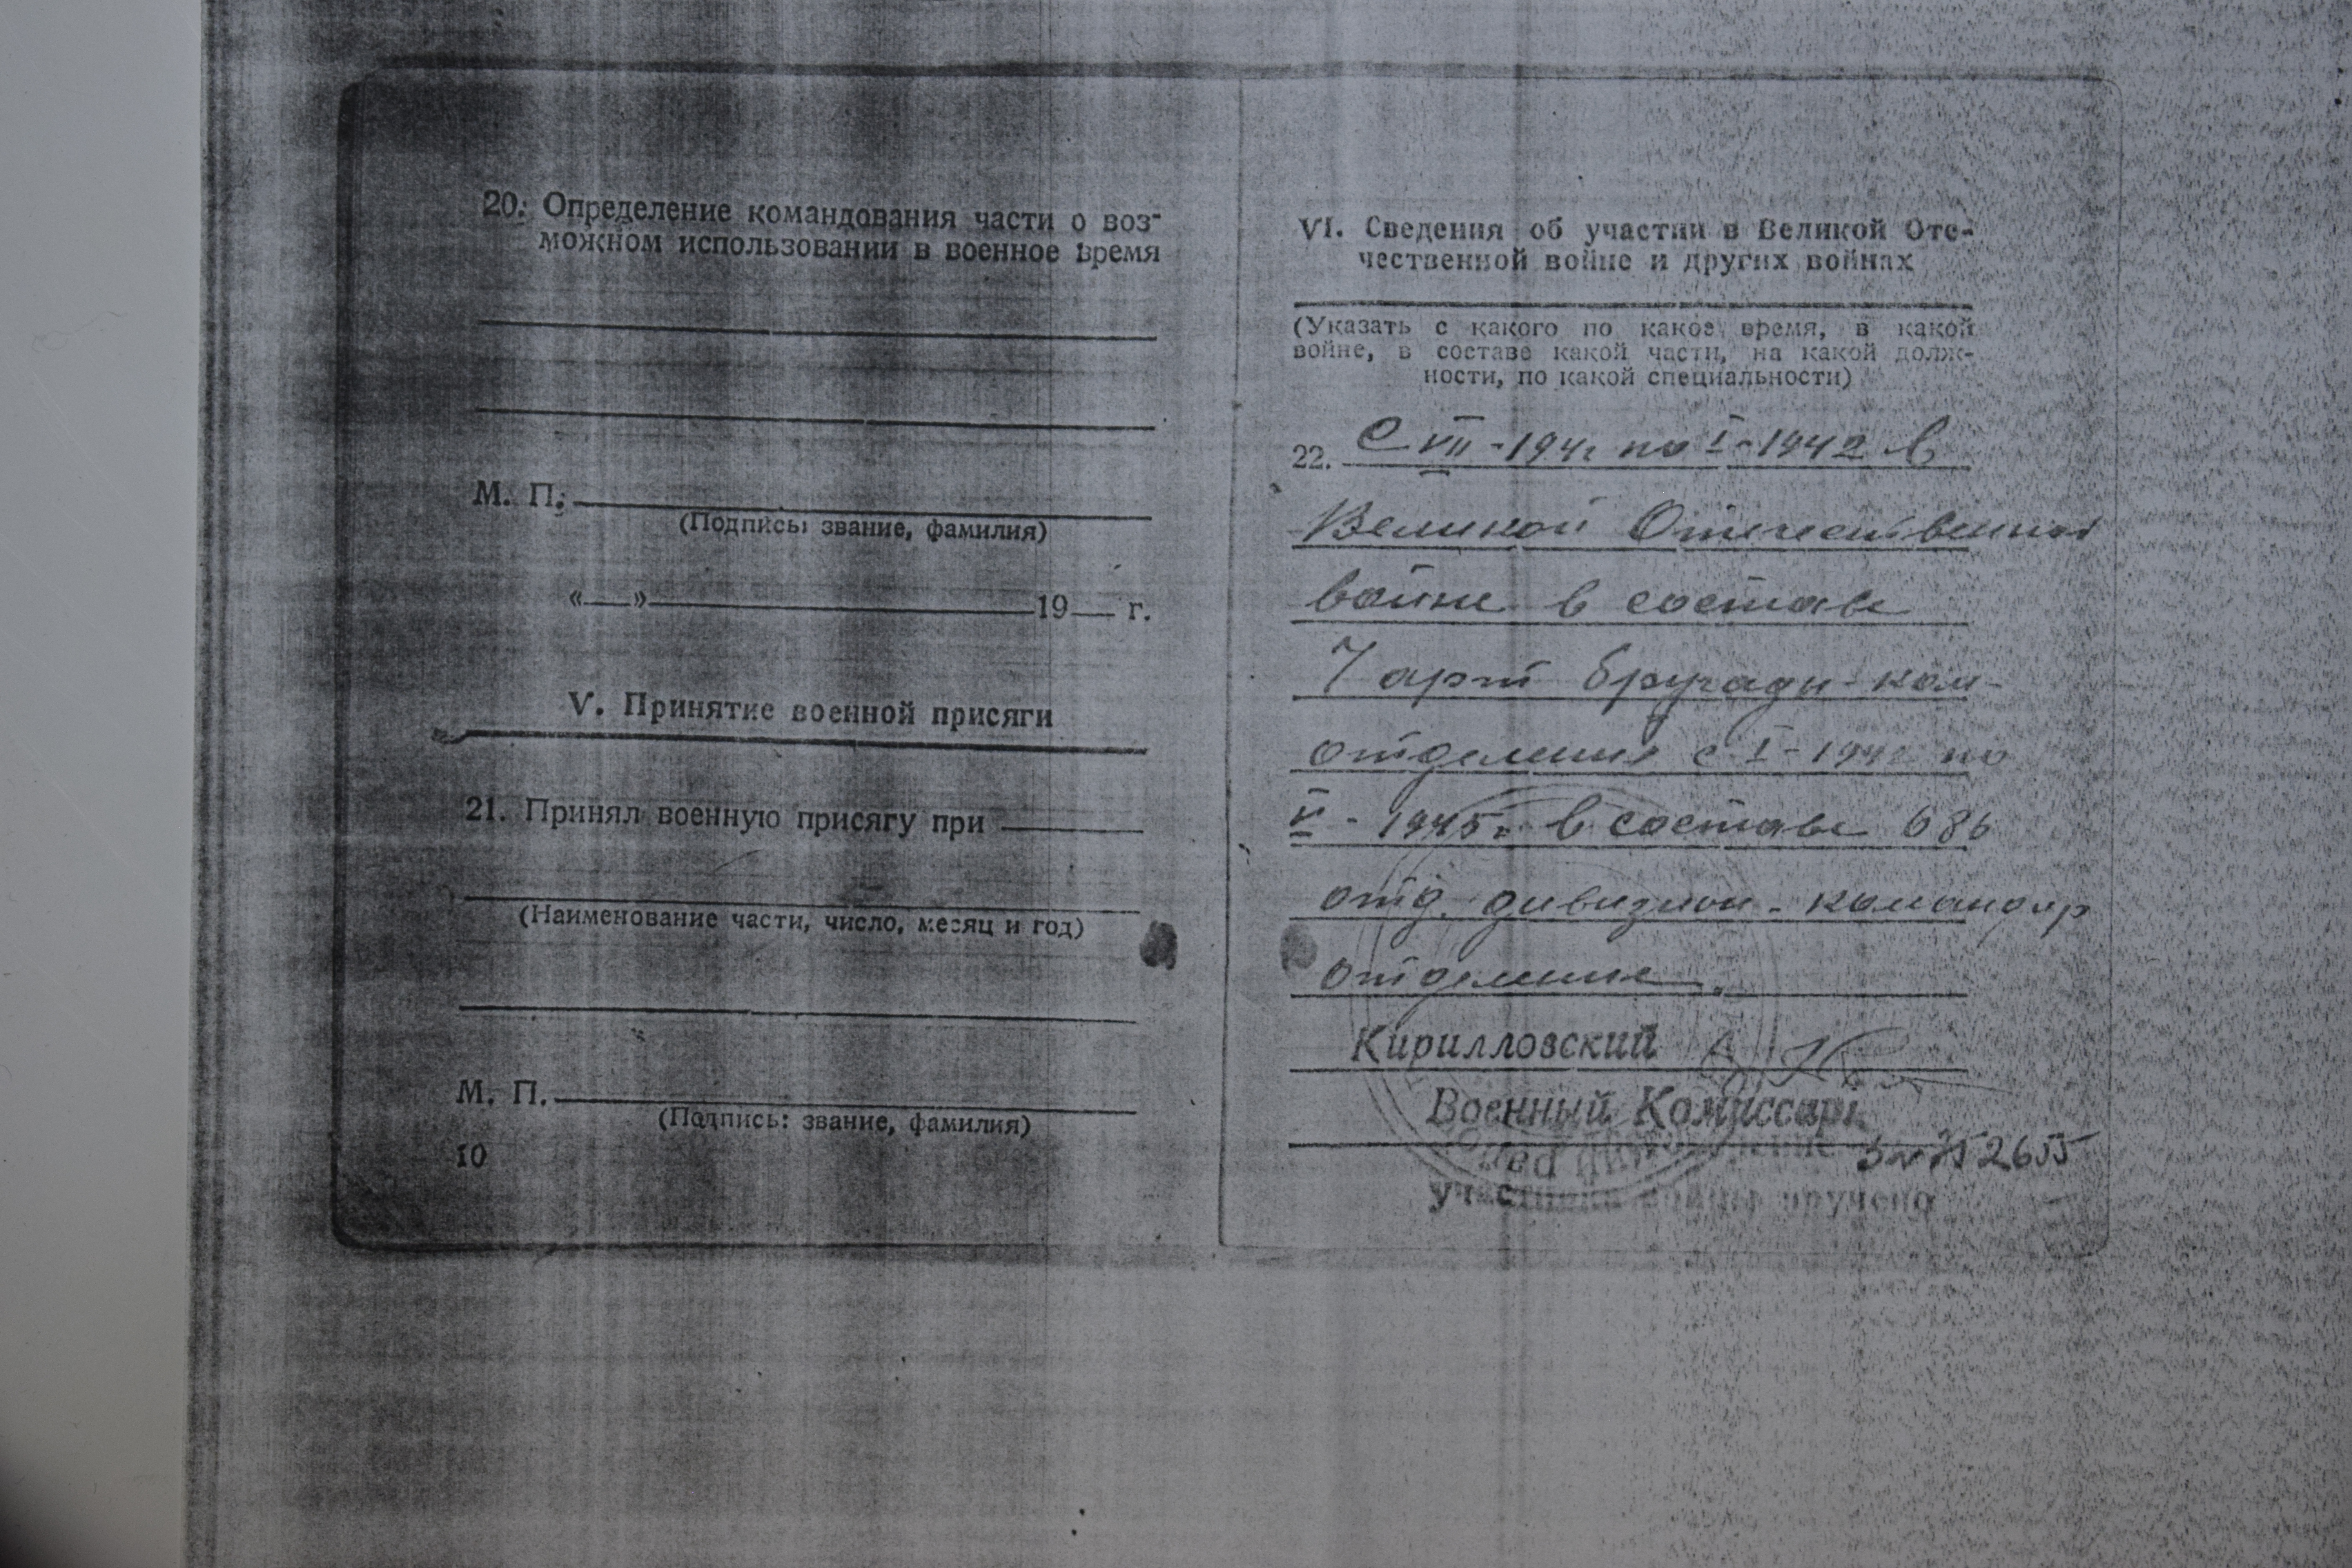 20. Определение командования части о воз-
можном использовании в военное время
М. П.
(Подпись: звание, фамилия)
« » 19 г.
V. Принятие военной присяги
21. Принял военную присягу при
(Наименование части, число, месяц и год)
М. П.
(Подпись: звание, фамилия)
10
VI. Сведения об участии в Великой Оте-
чественной войне и других войнах
(Указать с какого по какое время, в какой
войне, в составе какой части, на какой долж-
ности, по какой специальности)
22. С VII - 1941 по I - 1942 в
Великой Отечественной
войне в составе
7 арт бригады - ком-
отделения с I - 1942 по
V - 1945 г. в составе 686
отд. дивизион - командир
отделения.
Кирилловский
Военный Комиссар
752655
участника войны вручено